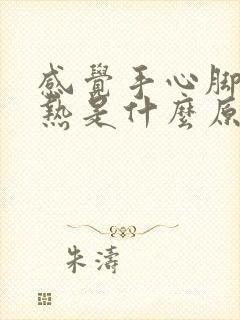 感覺手心腳
熱是什麼原
朱濤